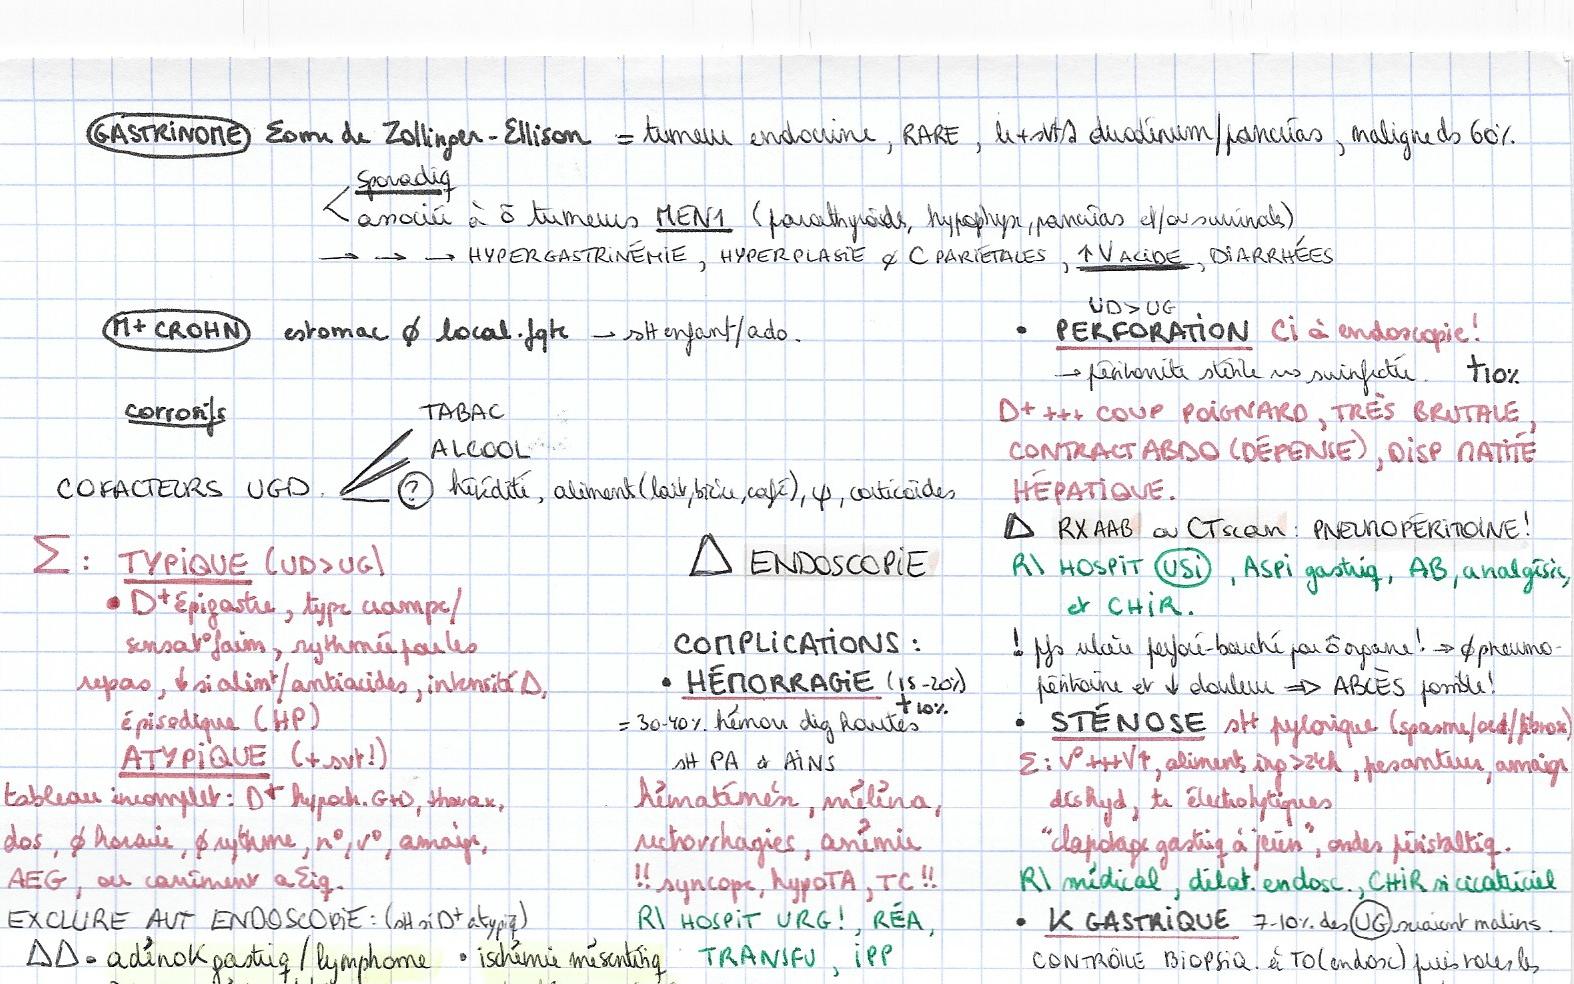 GASTRINOME Σome de Zollinger-Ellison = tumeur endocrine, RARE, le + svt duodénum/pancréas, maligne ds 60%.
Sporadiq
associé à ō tumeurs MEN1 (parathyroïde, hypophyse, pancréas et/ou surrénale)
→ → → HYPERGASTRINÉMIE, HYPERPLASIE ¢ C PARIÉTALES, ↑V ACIDE, DIARRHÉES
M+ CROHN estomac ∅ local. fqte → stt enfant/ado.
corrosifs
TABAC
ALCOOL
COFACTEURS UGD. ? hérédité, aliment (lait, bière, café), ψ, corticoïdes
Σ: TYPIQUE (UD>UG)
• D+ épigastre, type crampe/
sensat° faim, rythmée par les
repas, ↓ si alimt/antiacides, intensité Δ,
épisodique (HP)
ATYPIQUE (+ svt!)
tableau incomplet: D+ hypoch. G+D, thorax,
dos, ∅ horaire, ∅ rythme, n°, v°, amaigr,
AEG, ou carrément aΣiq.
EXCLURE AVT ENDOSCOPIE: (stt si D+ atypiq)
ΔΔ • adénoK gastriq/lymphome • ischémie mésentériq
Δ ENDOSCOPIE
COMPLICATIONS:
• HÉMORRAGIE (15-20%)
†10%
= 30-40% hémorr dig hautes
stt PA & AINS
hématémèse, méléna,
rectorrhagies, anémie
!! syncope, hypoTA, TC !!
R\ HOSPIT URG!, RÉA,
TRANSFU, IPP
UD>UG
• PERFORATION CI à endoscopie!
→ péritonite stérile puis surinfectée. †10%
D+ +++ COUP POIGNARD, TRÈS BRUTALE,
CONTRACT ABDO (DÉFENSE), DISP MATITÉ
HÉPATIQUE.
Δ RXAAB ou CTscan: PNEUMOPÉRITOINE!
R\ HOSPIT USI, ASPI gastriq, AB, analgésie,
et CHIR.
! pfs ulcère perforé-bouché par ō organe! → ∅ pneumo-
péritoine et ↓ douleur => ABCÈS possible!
• STÉNOSE stt pylorique (spasme/œd/fibrose)
Σ: V° +++ V↑, aliment, ing >24h, pesanteur, amaigr
déshyd, tr électrolytiques
"clapotage gastriq à jeun", ondes péristaltiq.
R\ médical, dilat. endosc., CHIR si cicatriciel
• K GASTRIQUE 7-10% des UG seraient malins.
CONTRÔLE BIOPSIQ. à T0 (endosc) puis toutes les